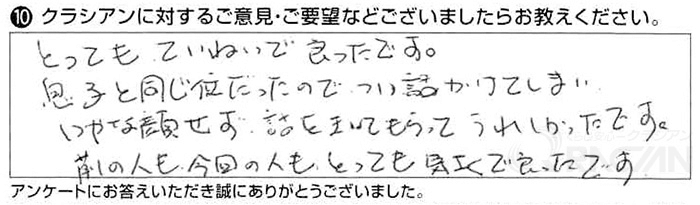 ⑩ クラシアンに対するご意見・ご要望などございましたらお教えください。
とっても ていねいで 良ったです。
息子と同じ位だったので つい話かけてしまい
いやな顔せず 話をきいてもらって うれしかったです。
前の人も 今回の人も とっても 良ったです
アンケートにお答えいただき誠にありがとうございました。